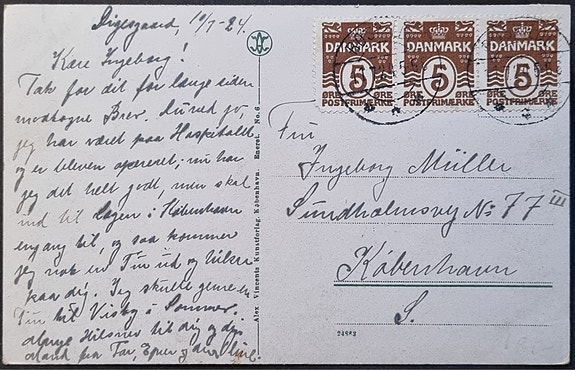 Digesgaard, 10/7-24.
Kære Ingeborg!
Tak for dit for længe siden
modtagne Brev. Du ved jo,
jeg har været paa Hospitalet
og er bleven opereret; nu har
jeg det helt godt, men skal
ind til Lægen i København
engang til, og saa kommer
jeg nok en Tur ud og hilser
paa dig. Jeg skulde gerne en
Tur til Visby i Sommer.
Mange Hilsner til dig og din
Mand fra Far, Ejner og din
DANMARK
5
ØRE ØRE
POSTFRIMÆRKE
DANMARK
5
ØRE ØRE
POSTFRIMÆRKE
DANMARK
5
ØRE ØRE
POSTFRIMÆRKE
Alex Vincents Kunstforlag, København. Eneret. No. 6
Fru
Ingeborg Müller
Sundholmsvej No 77 III
København
S.